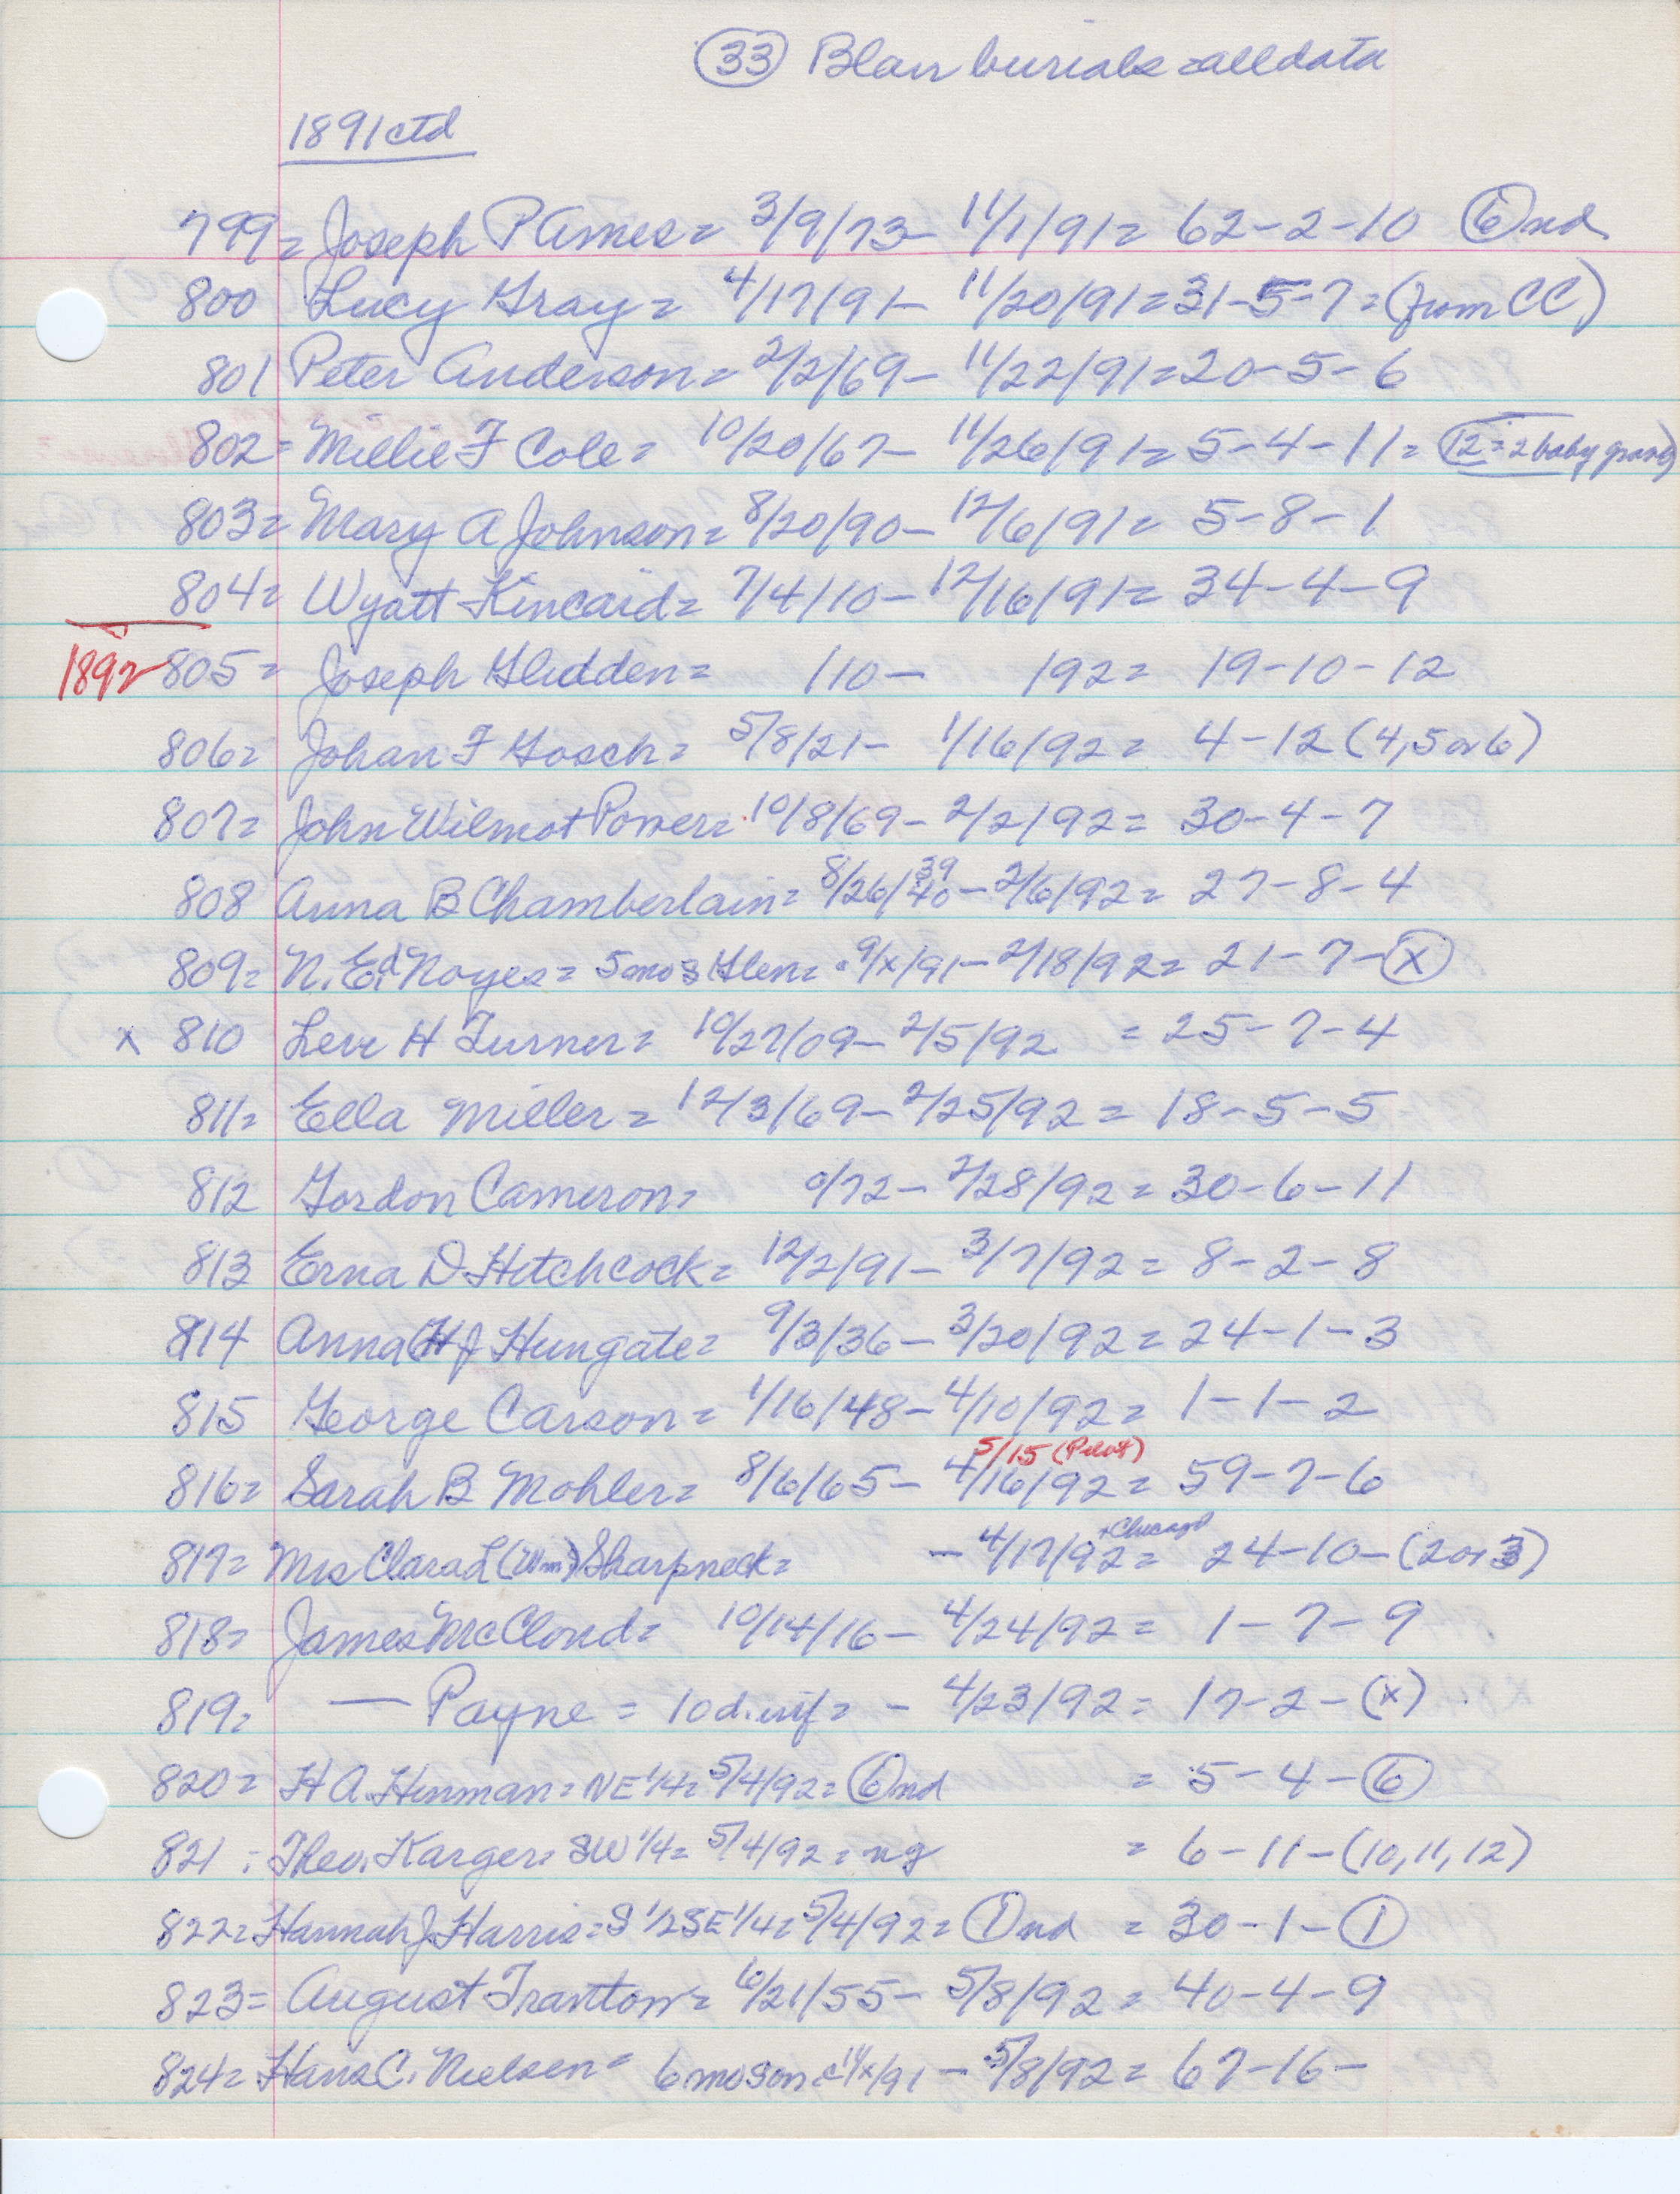 (33) Blair burials = all data
1891 ctd
799 = Joseph P Ames = 3/9/73 - 11/1/91 = 62-2-10 (6) nd
800 Lucy Gray = 4/17/91 - 11/20/91 = 31-5-7 = (from CC)
801 Peter Anderson = 2/2/69 - 11/22/91 = 20-5-6
802 = Millie F Cole = 10/20/67 - 11/26/91 = 5-4-11 = (12 = 2 baby graves)
803 = Mary A Johnson = 8/20/90 - 12/6/91 = 5-8-1
804 = Wyatt Kincaid = 7/4/10 - 12/16/91 = 34-4-9
1892 805 = Joseph Glidden = /10 - /92 = 19-10-12
806 = Johan F Gosch = 5/8/21 - 1/16/92 = 4-12 (4, 5 or 6)
807 = John Wilmot Power = 10/8/69 - 2/2/92 = 30-4-7
808 Anna B Chamberlain = 8/26/40 39 - 2/6/92 = 27-8-4
809 = N. Ed. Noyes = 5 mo s Glen = 9/x/91 - 2/18/92 = 21-7-(x)
x 810 Levi H Turner = 10/27/09 - 2/5/92 = 25-7-4
811 = Ella Miller = 12/3/69 - 2/25/92 = 18-5-5
812 Gordon Cameron = c/72 - 2/28/92 = 30-6-11
813 Erna D. Hitchcock = 12/2/91 - 3/7/92 = 8-2-8
814 Anna (H J Hungate = 9/3/36 - 3/20/92 = 24-1-3
815 George Carson = 1/16/48 - 4/10/92 = 1-1-2
5/15 (Pilot)
816 = Sarah B Mohler = 8/6/65 - 4/16/92 = 59-7-6
817 = Mrs Clara L (Wm) Sharpneck = - 4/17/92 = +Chicago 24-10-(2 or 3)
818 = James McCloud = 10/14/16 - 4/24/92 = 1-7-9
819 = — Payne = 10 d. inf = - 4/23/92 = 17-2-(x)
820 = H A. Hinman = NE 1/4 = 5/4/92 = (6) nd = 5-4-(6)
821 = Theo. Karger = SW 1/4 = 5/4/92 = ng = 6-11-(10, 11, 12)
822 = Hannah J. Harris = S 1/2 SE 1/4 = 5/4/92 = (1) nd = 30-1-(1)
823 = August Trantow = 6/21/55 - 5/8/92 = 40-4-9
824 = Hans C. Nielsen = 6 mo son = c 11/x/91 - 5/8/92 = 67-16-